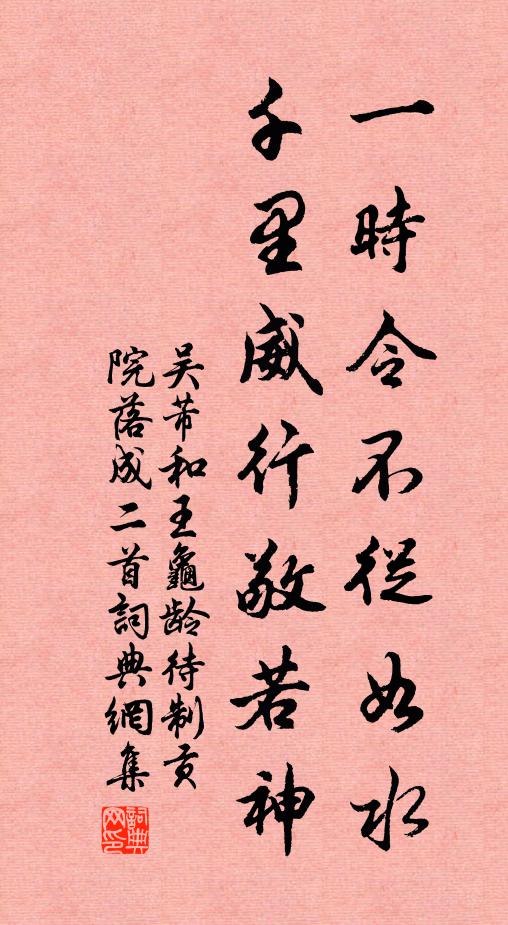 一時令不從如水
千里威行敬若神
吴芾和王龜齡待制貢
院落成二首詞典網集
詞典
网印